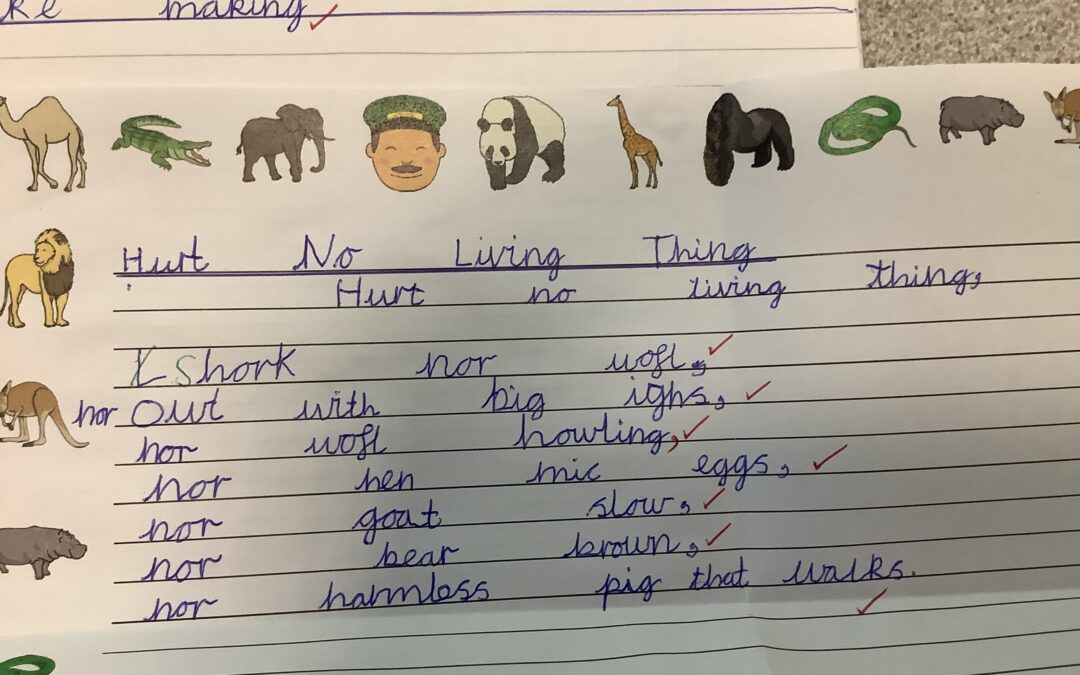 ke making,
Hurt No Living Thing
Hurt no living thing,
Shork nor wofl,
nor Owt with big ighs,
nor wofl howling,
nor hen mic eggs,
nor goat slow,
nor bear brown,
nor harmless pig that walks.